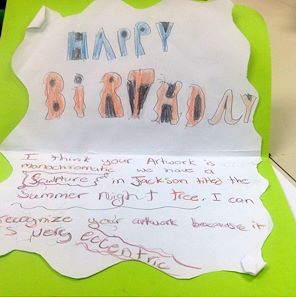 HAPPY
BiRTHDAY
I think your Artwork is
monochromatic we have a
Sculpture in Jackson titled the
Summer Night Tree. I can
recognize your artwork because it
s very eccentric